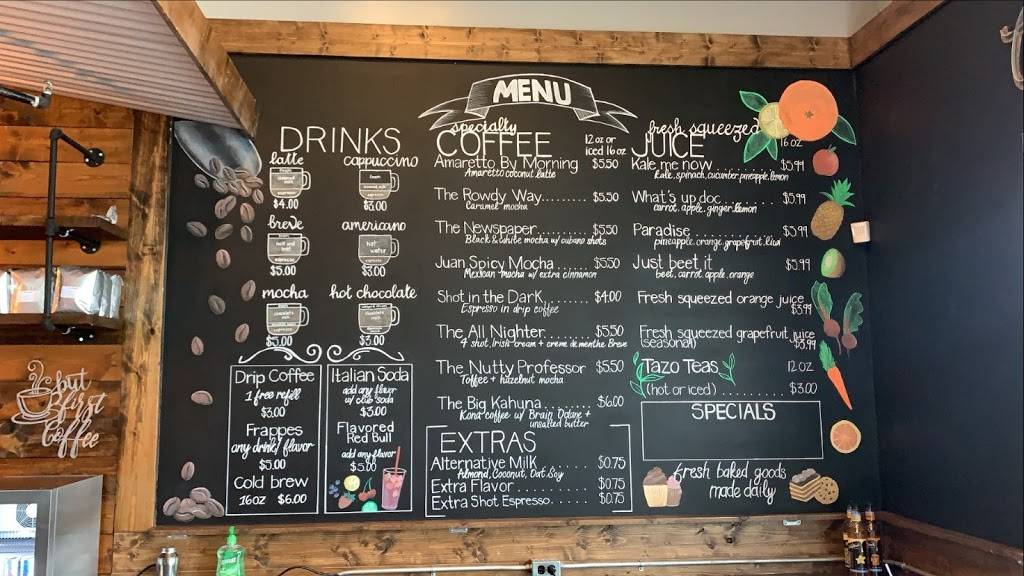 MENU
DRINKS
latte
$4.00
cappuccino
$3.00
breve
half and half
espresso
$5.00
americano
hot water
espresso
$3.00
mocha
$5.00
hot chocolate
$3.00
Drip Coffee
1 free refill
$3.00
Frappes
any drink/flavor
$5.00
Cold brew
16oz $6.00
Italian Soda
add any flavor
w/ club soda
$3.00
Flavored
Red Bull
add any flavor
$5.00
specialty
COFFEE
12 oz or
iced 16 oz
Amaretto By Morning $5.50
Amaretto coconut latte
The Rowdy Way......... $5.50
Caramel mocha
The Newspaper......... $5.50
Black & white mocha w/ cubano shots
Juan Spicy Mocha..... $5.50
Mexican mocha w/ extra cinnamon
Shot in the Dark........ $4.00
Espresso in drip coffee
The All Nighter.......... $5.50
4 shot, Irish cream + crème de menthe Breve
The Nutty Professor $5.50
Toffee + hazelnut mocha
The Big Kahuna......... $6.00
Kona coffee w/ Brain Octane +
unsalted butter
EXTRAS
Alternative Milk.......... $0.75
Almond, Coconut, Oat, Soy
Extra Flavor................ $0.75
Extra Shot Espresso....... $0.75
fresh squeezed
JUICE
16 oz
Kale me now............. $5.99
kale, spinach, cucumber, pineapple, lemon
What's up doc.......... $5.99
carrot, apple, ginger, lemon
Paradise.................. $5.99
pineapple, orange, grapefruit, kiwi
Just beet it $5.99
beet, carrot, apple, orange
Fresh squeezed orange juice
$5.99
Fresh squeezed grapefruit juice
(seasonal) $5.99
Tazo Teas 12 oz
(hot or iced)............ $3.00
SPECIALS
fresh baked goods
made daily
but
first
coffee